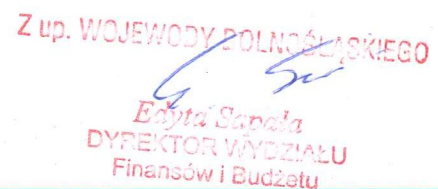 Z up. WOJEWODY DOLNOŚLĄSKIEGO
Edyta Sapała
DYREKTOR WYDZIAŁU
Finansów i Budżetu